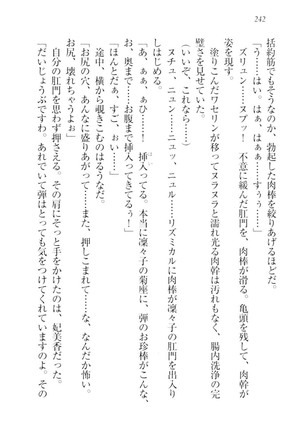 242
括約筋でもそうなのか、勃起した肉棒を絞りあげるほどだ。
「う……はい。はぁ、はぁぁ……すぅぅ……」
ズリュン……ヌブッ！　不意に緩んだ肛門を、肉棒が滑る。亀頭を残して、肉幹が
姿を現す。
塗りこんだワセリンが移ってヌラヌラと濡れ光る肉幹は汚れもなく、腸内洗浄の完
璧さを見せていた。
（いいぞ、これなら……）
ヌチュ、ニュン……ニュッ、ニュル……リズミカルに肉棒が凜々子の肛門を出入り
しはじめる。
「あ、ぁぁ、あぁ……！　挿入ってる。本当に凜々子の菊座に、弾のお珍棒がこんな、
あ、奥まで……お腹まで挿入ってきてるぅ！」
「ほんとだぁ、すご、おぃ……」
途中、横から覗きこむのはるうなだ。
「お尻の穴、あんなに盛りあがって……また、押しこまれて……な、なんだか怖い。
お尻、壊れちゃうよぉ」
自分の肛門を思わず押さえる。その肩にそっと手をかけたのは、妃美香だった。
「だいじょうぶですわ。あれでいて弾はとっても気をつけてくれていますのよ。その